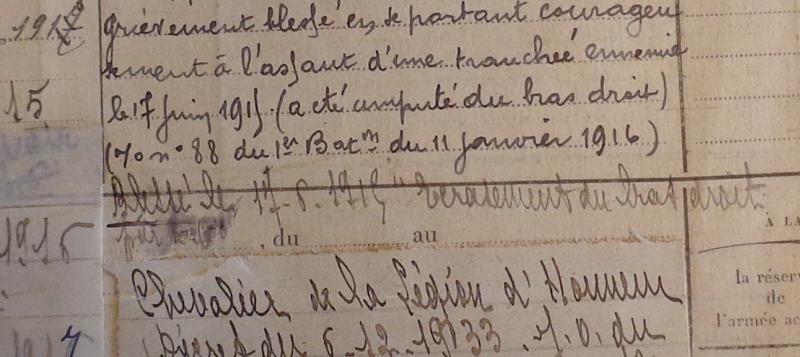 1917
grièvement blessé en se portant courageu
sement à l'assaut d'une tranchée ennemie
15
le 17 juin 1915 (a été amputé du bras droit)
(Jo n° 88 du 1er Batn du 11 janvier 1916)
Blessé le 17.6.1915 "Ecrasement du bras droit
par
1915
, du au
À LA
Chevalier de la Légion d'Honneur
la réserv
de
l'armée ac
Décret du 6.12.1933 J.O. du